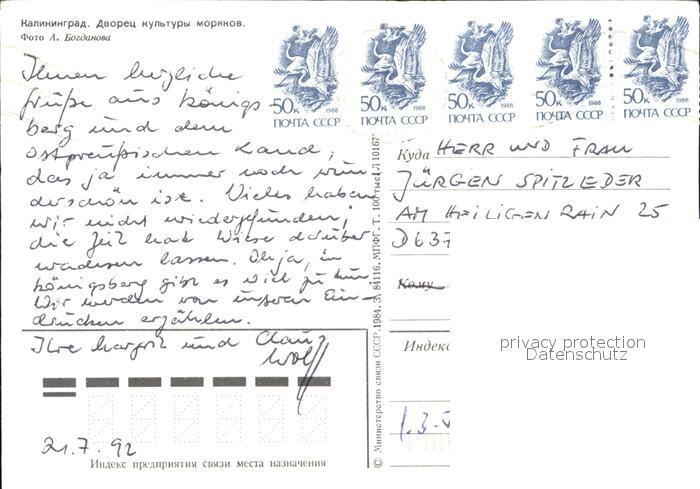 Калининград. Дворец культуры моряков.
Фото А. Богданова
50к 1988 ПОЧТА СССР
50к 1988 ПОЧТА СССР
50к 1988 ПОЧТА СССР
50к 1988 ПОЧТА СССР
50к 1988 ПОЧТА СССР
Ihnen herzliche
Grüße aus Königs
berg und dem
ostpreußischen Land,
das ja immer noch wun
derschön ist. Vieles haben
wir nicht wiedergefunden;
die Zeit hat Wiese darüber
wachsen lassen. Oh ja, in
Königsberg gibt es viel zu tun
Wir werden von unseren Ein-
drücken erzählen.
Ihre Margot und Claus
Wolff
21.7.92
Индекс предприятия связи места назначения
© Министерство связи СССР. 1984. З. 84116. МПФГ. Т. 100 тыс. Л 101677
Куда HERR UND FRAU
JÜRGEN SPITZLEDER
AM HEILIGEN RAIN 25
D 637
Кому
Индекс
privacy protection
Datenschutz